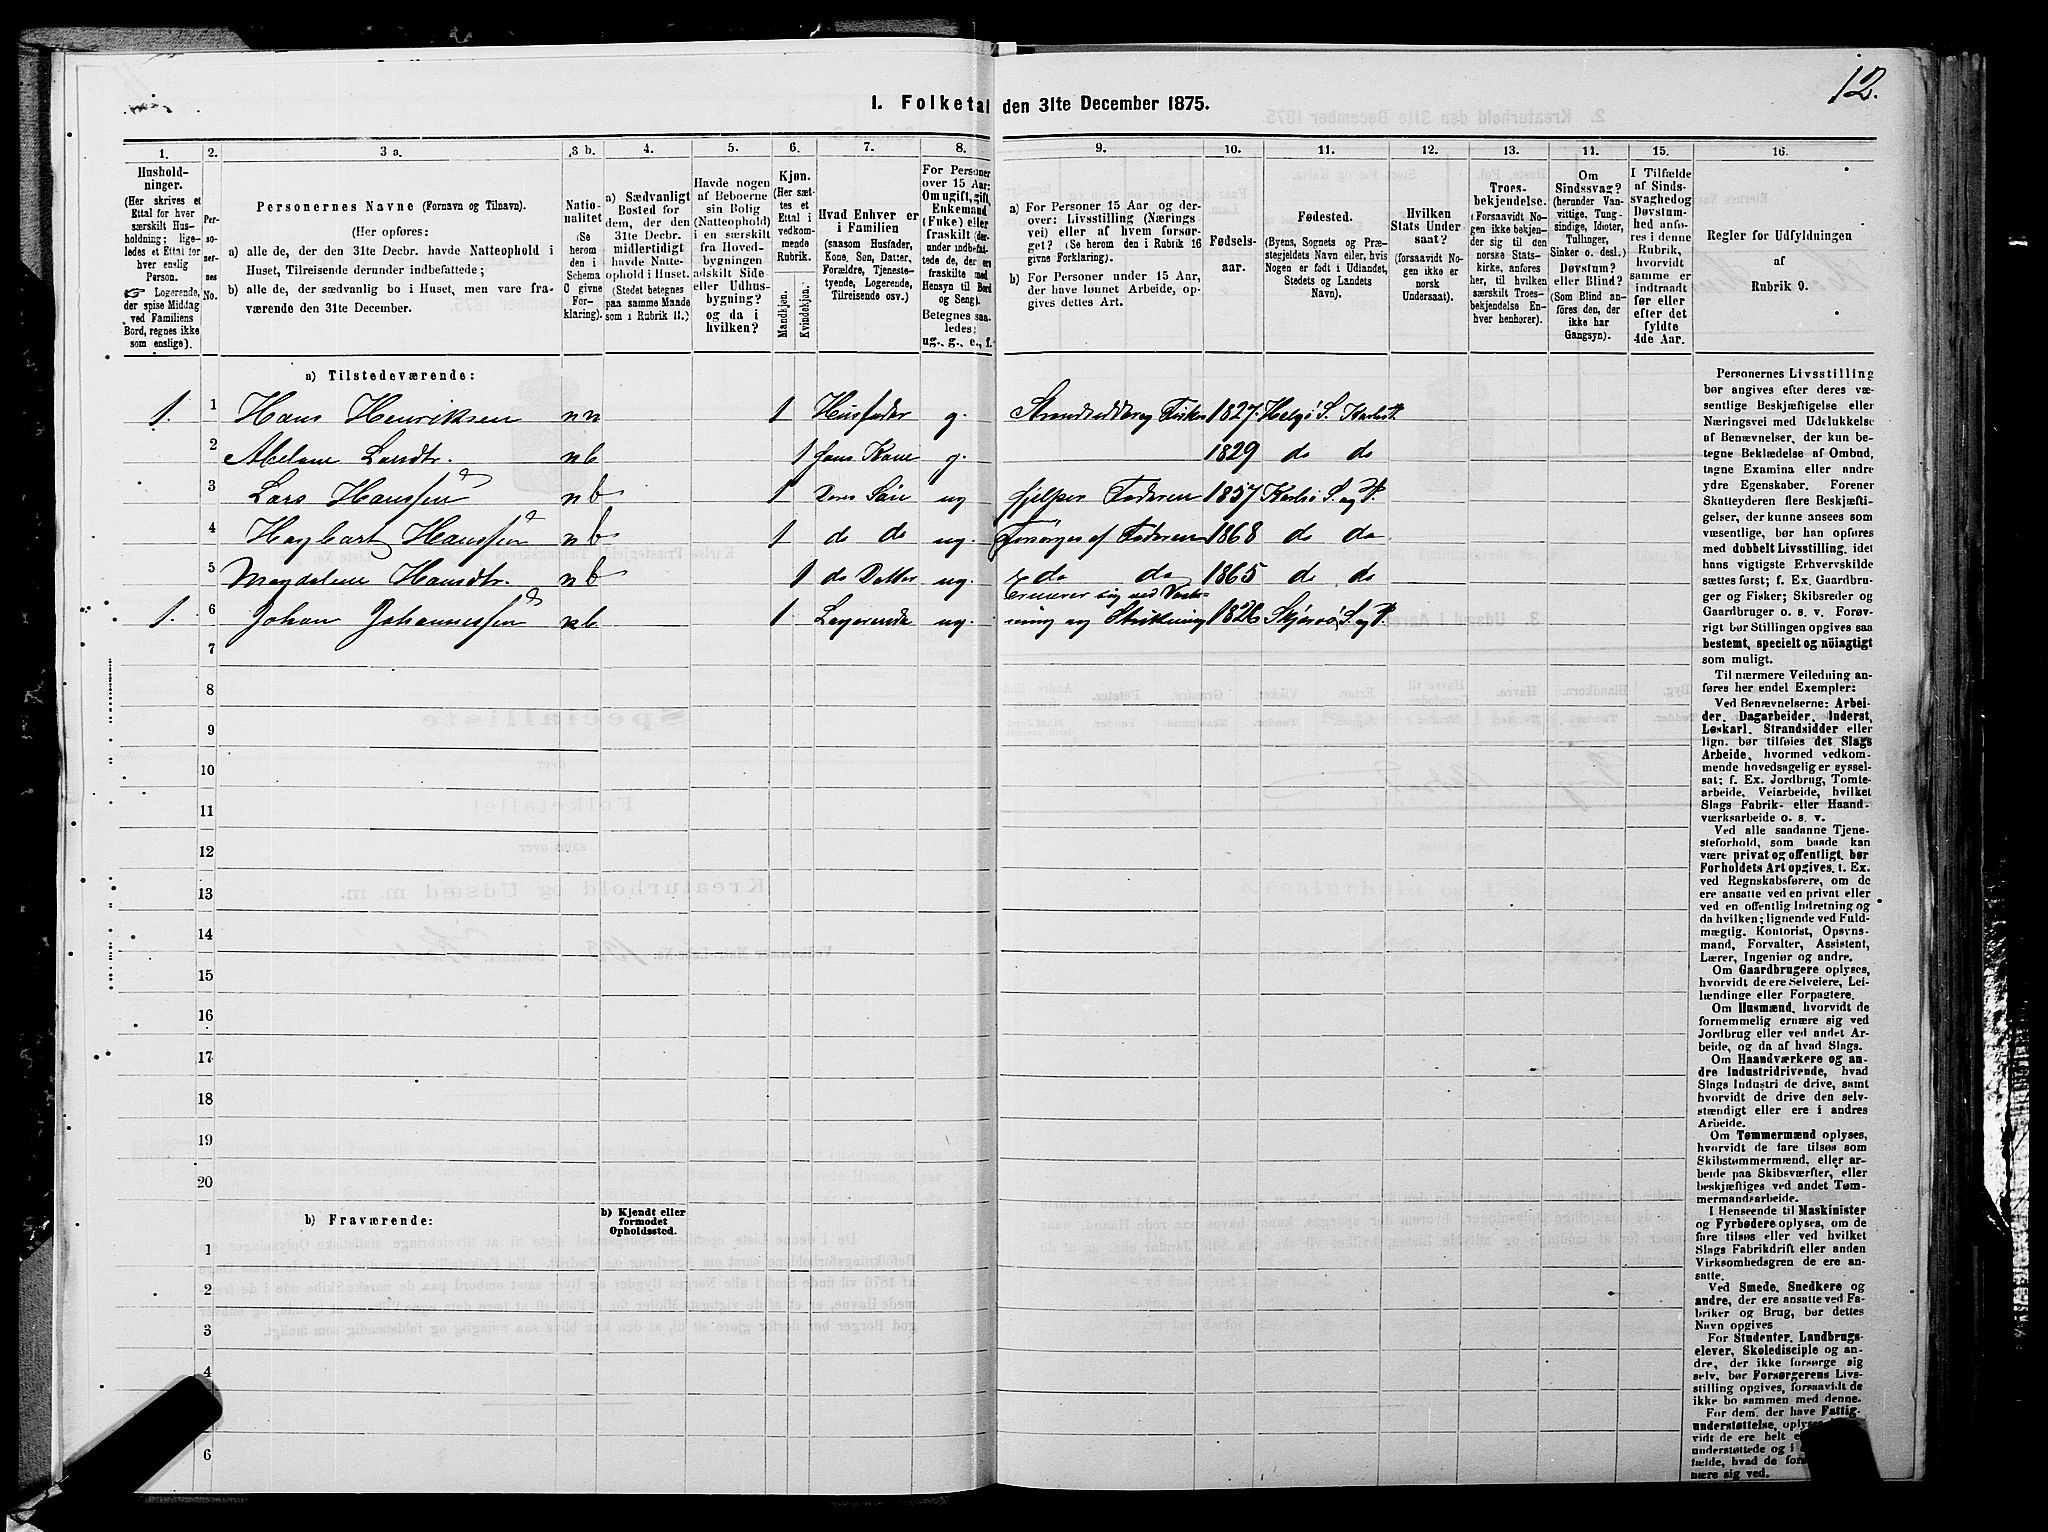 12.
1. Folketal den 31te December 1875.
1. 2. 3 a. 3 b. 4. 5. 6. 7. 8. 9. 10. 11. 12. 13. 14. 15. 16.
Hushold-
ninger.
(Her skrives et
Ettal for hver
særskilt Hus-
holdning; lige-
ledes et Ettal
for hver enslig
Person.
☞ Logerende,
der spise Middag
ved Familiens
Bord, regnes ikke
som enslige).
Per-
so-
ner-
nes
No.
Personernes Navne (Fornavn og Tilnavn).
(Her opføres:
a) alle de, der den 31te Decbr. havde Natteophold i
Huset, Tilreisende derunder indbefattede;
b) alle de, der sædvanlig bo i Huset, men vare fra-
værende den 31te December.
Natio-
nalitet
(Se
herom
den i
Schema
C givne
For-
klaring).
a) Sædvanligt
Bosted for
dem, der den
31te Decbr.
midlertidigt
havde Natte-
ophold i Huset.
(Stedet betegnes
paa samme Maade
som i Rubrik 11.)
Havde nogen
af Beboerne
sin Bolig
(Natteophold)
i en særskilt
fra Hoved-
bygningen
adskilt Side-
eller Udhus-
bygning?
og da i
hvilken?
Kjøn.
(Her sæt-
tes et
Ettal i
vedkom-
mende
Rubrik.
Mandkjøn.
Kvindekjøn.
Hvad Enhver er
i Familien
(saasom Husfader,
Kone, Søn, Datter,
Forældre, Tjeneste-
tyende, Logerende,
Tilreisende osv.)
For Personer
over 15 Aar:
Om ugift, gift,
Enkemand
(Enke) eller
fraskilt (der-
under indbefat-
tede de, der ere
fraskilte med
Hensyn til Bord
og Seng).
Betegnes saa-
ledes:
ug., g., e., f.
a) For Personer 15 Aar og der-
over: Livsstilling (Nærings-
vei) eller af hvem forsør-
get? (Se herom den i Rubrik 16
givne Forklaring).
b) For Personer under 15 Aar,
der have lønnet Arbeide, op-
gives dettes Art.
Fødsels-
aar.
Fødested.
(Byens, Sognets og Præ-
stegjeldets Navn eller, hvis
Nogen er født i Udlandet,
Stedets og Landets
Navn).
Hvilken
Stats Under-
saat?
(forsaavidt No-
gen ikke er
norsk
Undersaat).
Troes-
bekjendelse.
(Forsaavidt No-
gen ikke bekjen-
der sig til den
norske Stats-
kirke, anføres
her, til hvilken
særskilt Troes-
bekjendelse En-
hver henhører).
Om
Sindssvag?
(herunder Van-
vittige, Tung-
sindige, Idioter,
Tullinger,
Sinker o. desl.)
Døvstum?
eller Blind?
(Som Blind an-
føres den, der
ikke har
Gangsyn).
I Tilfælde
af Sinds-
svaghed og
Døvstum-
hed anfø-
res i denne
Rubrik,
hvorvidt
samme er
indtraadt
før eller
efter det
fyldte
4de Aar.
Regler for Udfyldningen
af
Rubrik 9.
a) Tilstedeværende:
1. 1 Hans Henriksen nn 1 Husfader g. Strandsidder og Fisker 1827 Helgø S. Karlsø P.
2 Abelone Larsdtr. nb 1 hans Kone g. 1829 do do
3 Lars Hanssen nb 1 Deres Søn ug hjelper Faderen 1857 Karlsø S. og P.
4 Haghart Hanssen nb 1 do do ug. Forsørges af Faderen 1868 do do
5 Magdalene Hansdtr. nb 1 do Datter ug. do do 1865 do do
1. 6 Johan Johannessen nb 1 Logerende ug. Ernærer sig ved
ning og Strikkning 1826 Skjervø S. og P.
7
8
9
10
11
12
13
14
15
16
17
18
19
20
b) Fraværende:
b) Kjendt eller
formodet
Opholdssted.
1
2
3
4
5
6
Personernes Livsstilling
bør angives efter deres væ-
sentlige Beskjæftigelse eller
Næringsvei med Udelukkelse
af Benævnelser, der kun be-
tegne Beklædelse af Ombud,
tagne Examina eller andre
ydre Egenskaber. Forener
Skatteyderen flere Beskjæfti-
gelser, der kunne ansees som
væsentlige, bør han opføres
med dobbelt Livsstilling, idet
hans vigtigste Erhvervskilde
sættes først; f. Ex. Gaardbru-
ger og Fisker; Skibsreder og
Gaardbruger o. s. v. Forøv-
rigt bør Stillingen opgives saa
bestemt, specielt og nöiagtigt
som muligt.
Til nærmere Veiledning an-
føres her endel Exempler:
Ved Benævnelserne: Arbei-
der, Dagarbeider, Inderst,
Løskarl, Strandsidder eller
lign. bør tilføies det Slags
Arbeide, hvormed vedkom-
mende hovedsagelig er syssel-
sat; f. Ex. Jordbrug, Tomte-
arbeide, Veiarbeide, hvilket
Slags Fabrik- eller Haand-
værksarbeide o. s. v.
Ved alle saadanne Tjene-
steforhold, som baade kan
være privat og offentligt, bør
Forholdets Art opgives, t. Ex.
ved Regnskabsførere, om de
ere ansatte ved en privat eller
ved en offentlig Indretning og
da hvilken; lignende ved Fuld-
mægtig, Kontorist, Opsyns-
mand, Forvalter, Assistent,
Lærer, Ingeniør og andre.
Om Gaardbrugere oplyses,
hvorvidt de ere Selveiere, Lei-
lændinge eller Forpagtere.
Om Husmænd, hvorvidt de
fornemmelig ernære sig ved
Jordbrug eller ved andet Ar-
beide, og da af hvad Slags.
Om Haandværkere og an-
dre Industridrivende, hvad
Slags Industri de drive, samt
hvorvidt de drive den selv-
stændigt eller ere i andres
Arbeide.
Om Tømmermænd oplyses,
hvorvidt de fare tilsøs som
Skibstømmermænd, eller ar-
beide paa Skibsværfter, eller
beskjæftiges ved andet Tøm-
mermandsarbeide.
I Henseende til Maskinister
og Fyrbødere oplyses, om de
fare tilsøs eller ved hvilket
Slags Fabrikdrift eller anden
Virksomhedsgren de ere an-
satte.
Ved Smede, Snedkere og
andre, der ere ansatte ved Fa-
briker og Brug, bør dettes
Navn opgives
For Studenter, Landbrugs-
elever, Skoledisciple og an-
dre, der ikke forsørge sig
selv, bør Forsørgerens Livs-
stilling opgives, forsaavidt de
ikke bo sammen med denne.
For dem, der have Fattig-
understøttelse, oplyses
vidt de ere helt
understøttede og i
fælde, hvad de
nære sig ved.